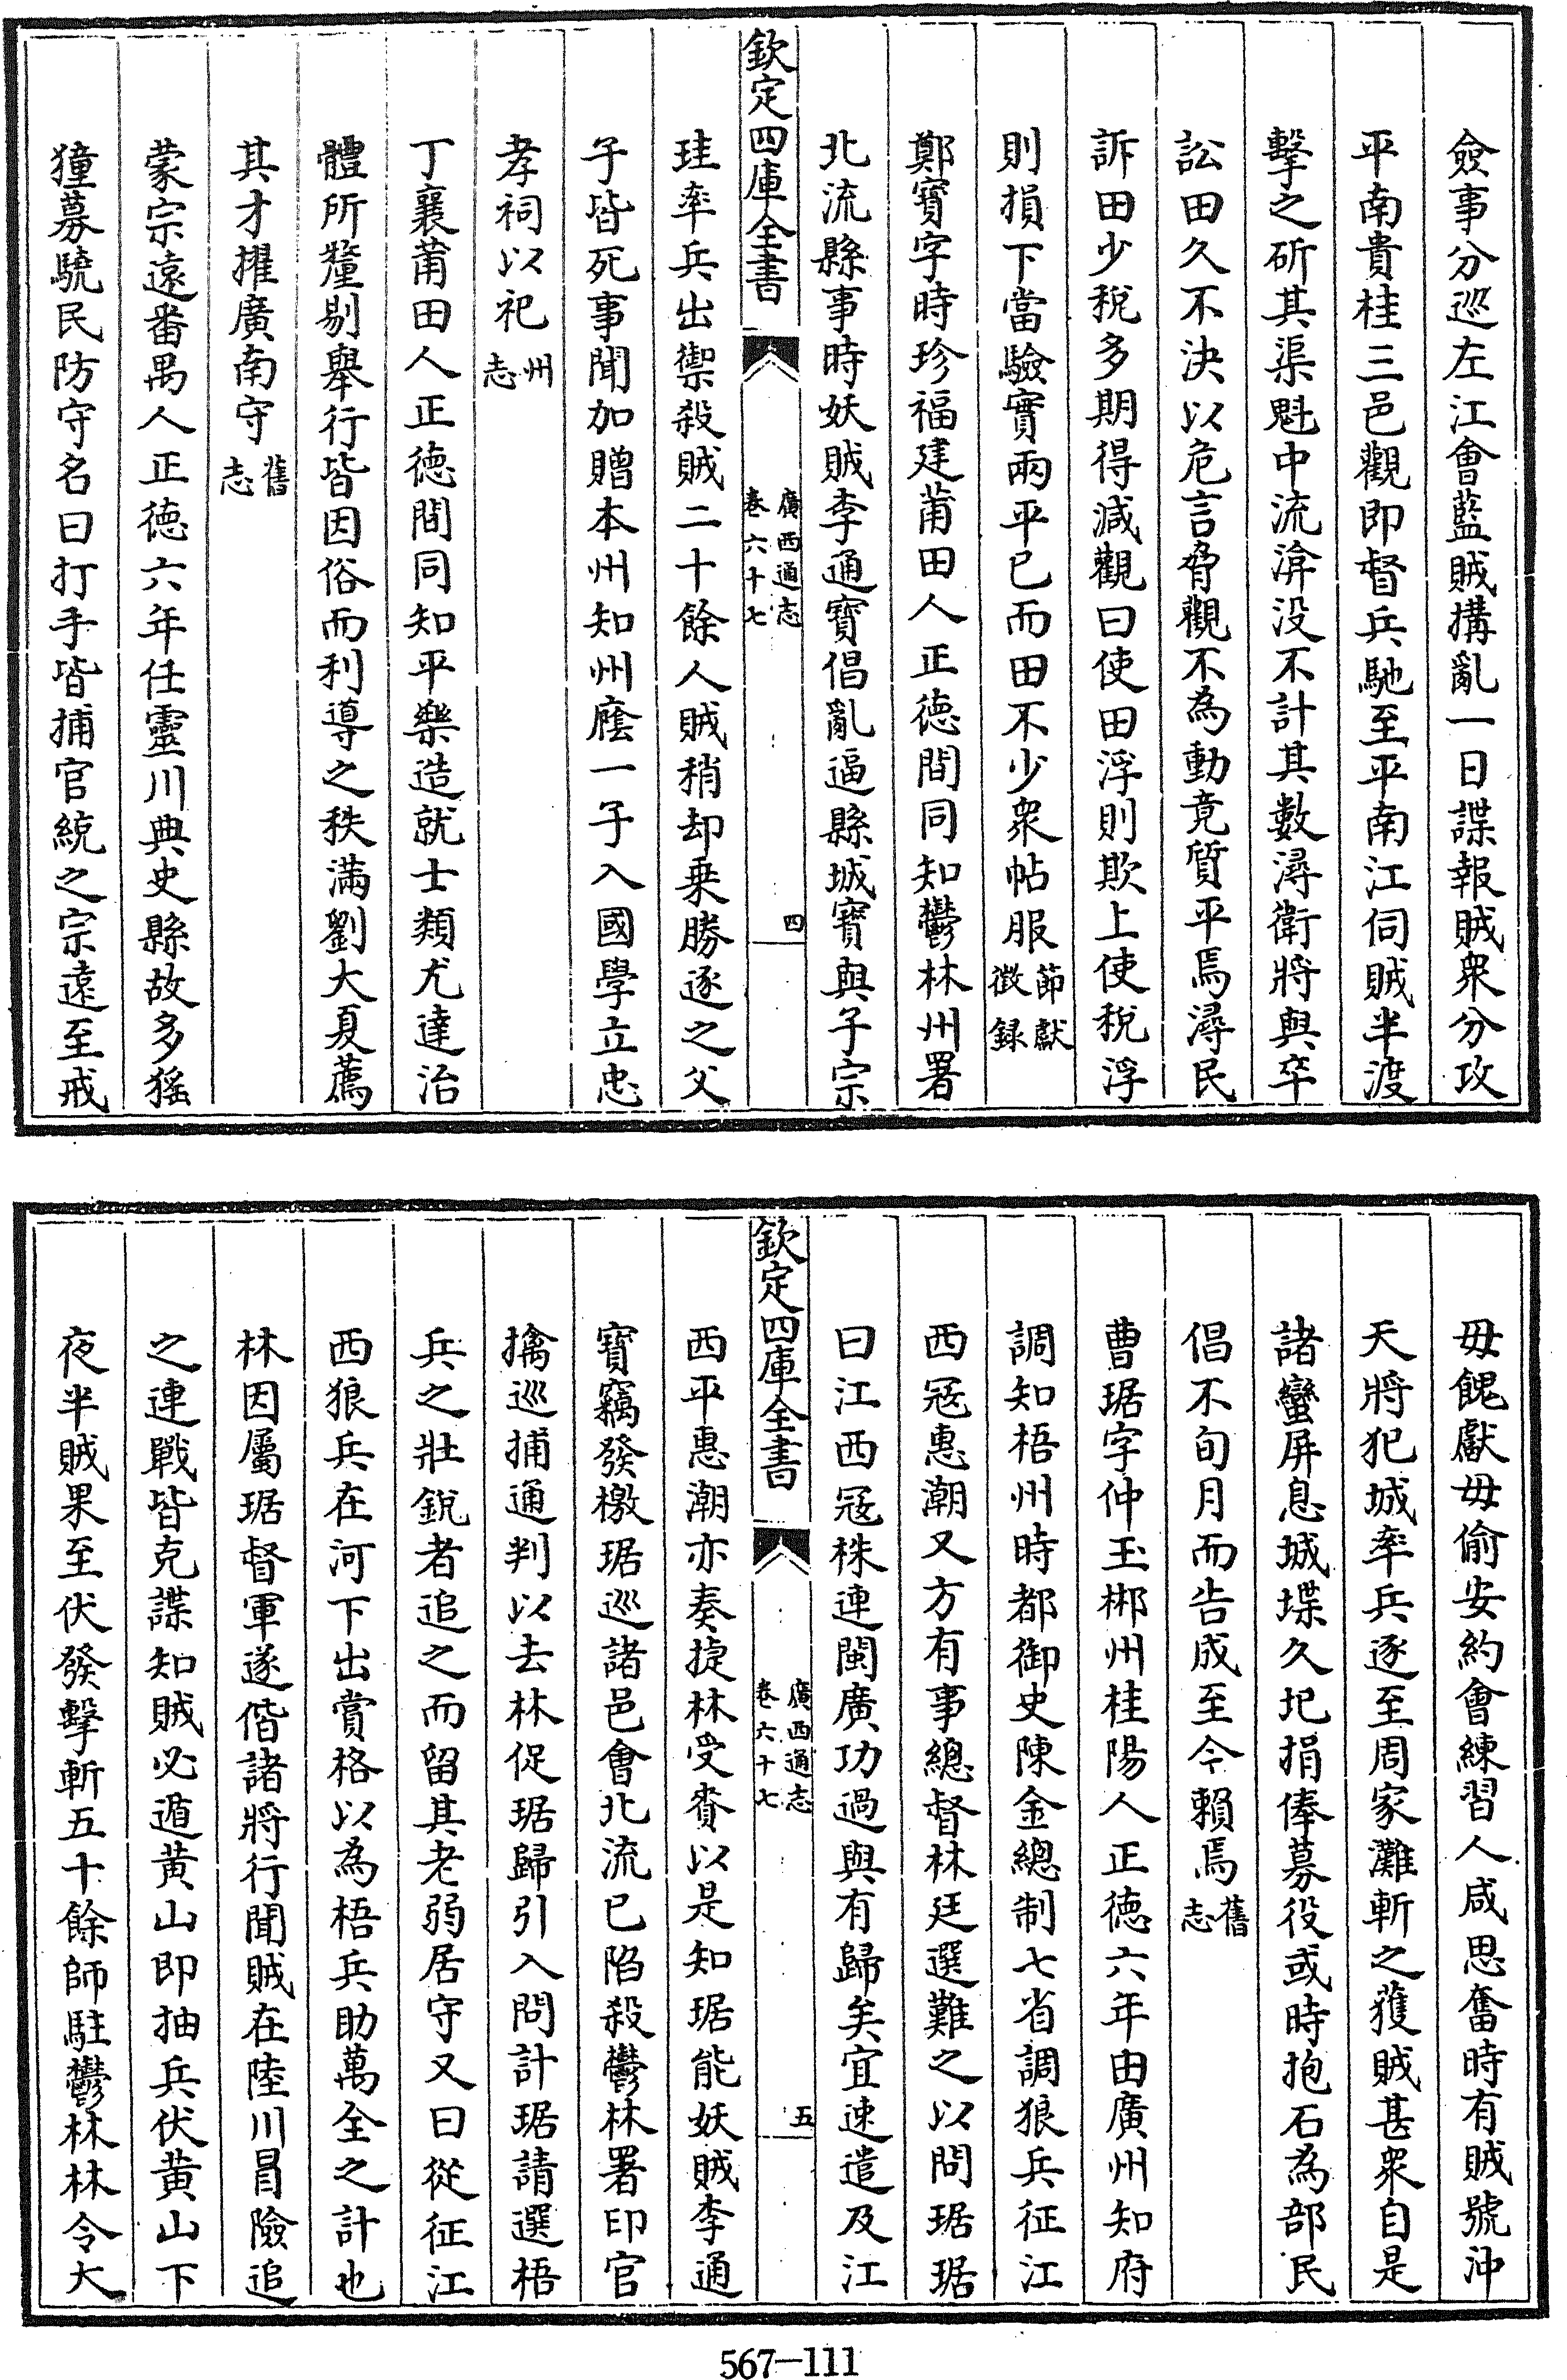 僉事分巡左江會藍賊搆亂一日諜報賊衆分攻
平南貴桂三邑觀即督兵馳至平南江伺賊半渡
擊之斫其渠魁中流渰没不計其數潯衛將與卒
訟田久不決以危言脅觀不為動竟質平焉潯民
訴田少稅多期得減觀曰使田浮則欺上使稅浮
則損下當驗實兩平已而田不少衆帖服節獻徴録
鄭寳字時珍福建莆田人正徳間同知鬱林州署
北流縣事時妖賊李通寳倡亂逼縣城寳與子宗
欽定四庫全書 廣西通志 卷六十七 四
珪率兵出禦殺賊二十餘人賊稍却乗勝逐之父
子皆死事聞加贈本州知州廕一子入國學立忠
孝祠以祀州志
丁襄莆田人正徳間同知平樂造就士類尤達治
體所釐剔舉行皆因俗而利導之秩滿劉大夏薦
其才擢廣南守舊志
蒙宗遠番禺人正徳六年任靈川典史縣故多猺
獞募驍民防守名曰打手皆捕官統之宗遠至戒
毋餽獻毋偷安約會練習人咸思奮時有賊號沖
天將犯城率兵逐至周家灘斬之獲賊甚衆自是
諸蠻屏息城堞久圮捐俸募役或時抱石為部民
倡不旬月而告成至今賴焉舊志
曹琚字仲玉郴州桂陽人正徳六年由廣州知府
調知梧州時都御史陳金總制七省調狼兵征江
西冦惠潮又方有事總督林廷選難之以問琚琚
曰江西冦株連閩廣功過與有歸矣宜速遣及江
欽定四庫全書 廣西通志 卷六十七 五
西平惠潮亦奏捷林受賚以是知琚能妖賊李通
寳竊發檄琚巡諸邑會北流已陷殺鬱林署印官
擒巡捕通判以去林促琚歸引入問計琚請選梧
兵之壯銳者追之而留其老弱居守又曰從征江
西狼兵在河下出賞格以為梧兵助萬全之計也
林因屬琚督軍遂偕諸將行聞賊在陸川冒險追
之連戰皆克諜知賊必遁黄山即抽兵伏黄山下
夜半賊果至伏發擊斬五十餘師駐鬱林林令大
567—111